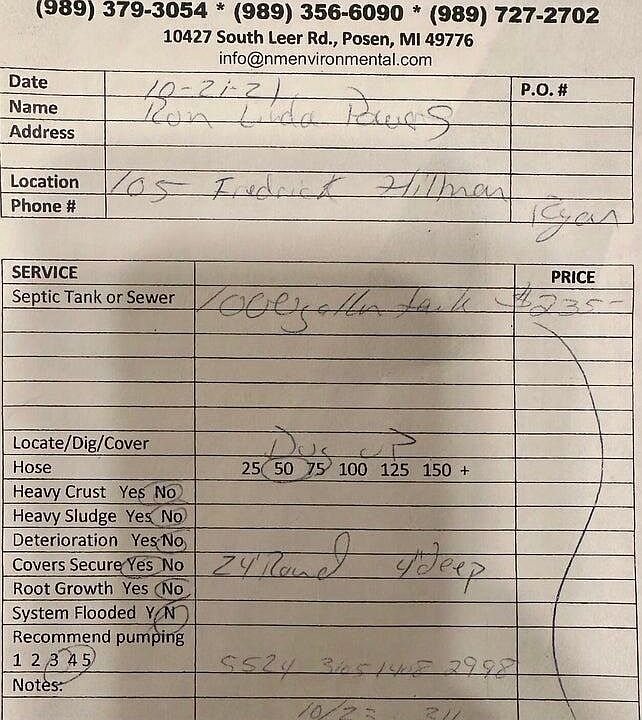 (989) 379-3054 * (989) 356-6090 * (989) 727-2702
10427 South Leer Rd., Posen, MI 49776
info@nmenvironmental.com
Date 10-21-21 P.O. #
Name Ron Linda Powers
Address
Location 105 Fredrick Hillman
Phone # Ryan
SERVICE PRICE
Septic Tank or Sewer 1000 gallon tank $235-
Locate/Dig/Cover Dug up
Hose 25 50 75 100 125 150 +
Heavy Crust Yes No
Heavy Sludge Yes No
Deterioration Yes No
Covers Secure Yes No 24" Round 4" deep
Root Growth Yes No
System Flooded Y N
Recommend pumping
1 2 3 4 5 5524
Notes:
10/23